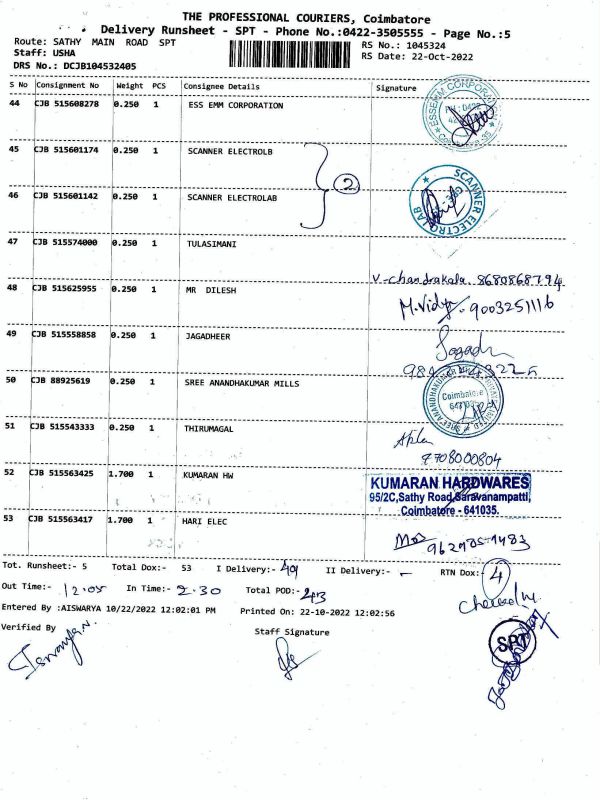 THE PROFESSIONAL COURIERS, Coimbatore
Delivery Runsheet - SPT - Phone No.:0422-3505555 - Page No.:5
Route: SATHY MAIN ROAD SPT
RS No.: 1045324
Staff: USHA
RS Date: 22-Oct-2022
DRS No.: DCJB104532405
S No Consignment No Weight PCS Consignee Details Signature
44 CJB 515608278 0.250 1 ESS EMM CORPORATION
ESSEMM CORPORATION
45 CJB 515601174 0.250 1 SCANNER ELECTROLB
2
46 CJB 515601142 0.250 1 SCANNER ELECTROLAB
SCANNER ELECTRO LAB
47 CJB 515574000 0.250 1 TULASIMANI
V-chandrakala. 8680868794
48 CJB 515625955 0.250 1 MR DILESH
M.Vidya-9003251116
49 CJB 515558858 0.250 1 JAGADHEER
Jagadh
50 CJB 88925619 0.250 1 SREE ANANDHAKUMAR MILLS
Coimbatore
51 CJB 515543333 0.250 1 THIRUMAGAL
7708000804
52 CJB 515563425 1.700 1 KUMARAN HW
KUMARAN HARDWARES
95/2C,Sathy Road,Saravanampatti,
Coimbatore - 641035.
53 CJB 515563417 1.700 1 HARI ELEC
Tot. Runsheet:- 5 Total Dox:- 53 I Delivery:- 49 II Delivery:- - RTN Dox:- 4
Out Time:- 12.05 In Time:- 2.30 Total POD:- 43
Entered By :AISWARYA 10/22/2022 12:02:01 PM Printed On: 22-10-2022 12:02:56
Verified By
Staff Signature
SPT